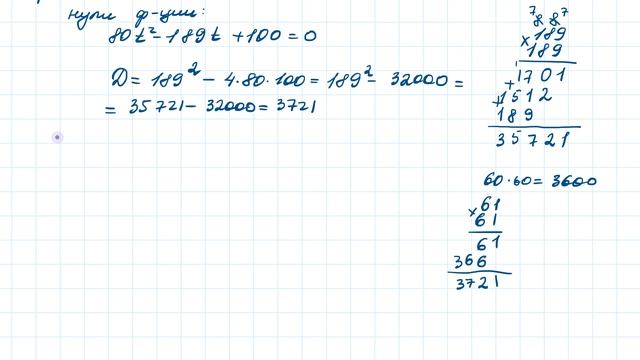 нули ф-ции:
80t² - 189t + 100 = 0
D = 189² - 4·80·100 = 189² - 32000 =
= 35721 - 32000 = 3721
7 8 8 7
× 189
189
1701
+ 1512
189
35721
60·60 = 3600
× 61
61
61
366
3721